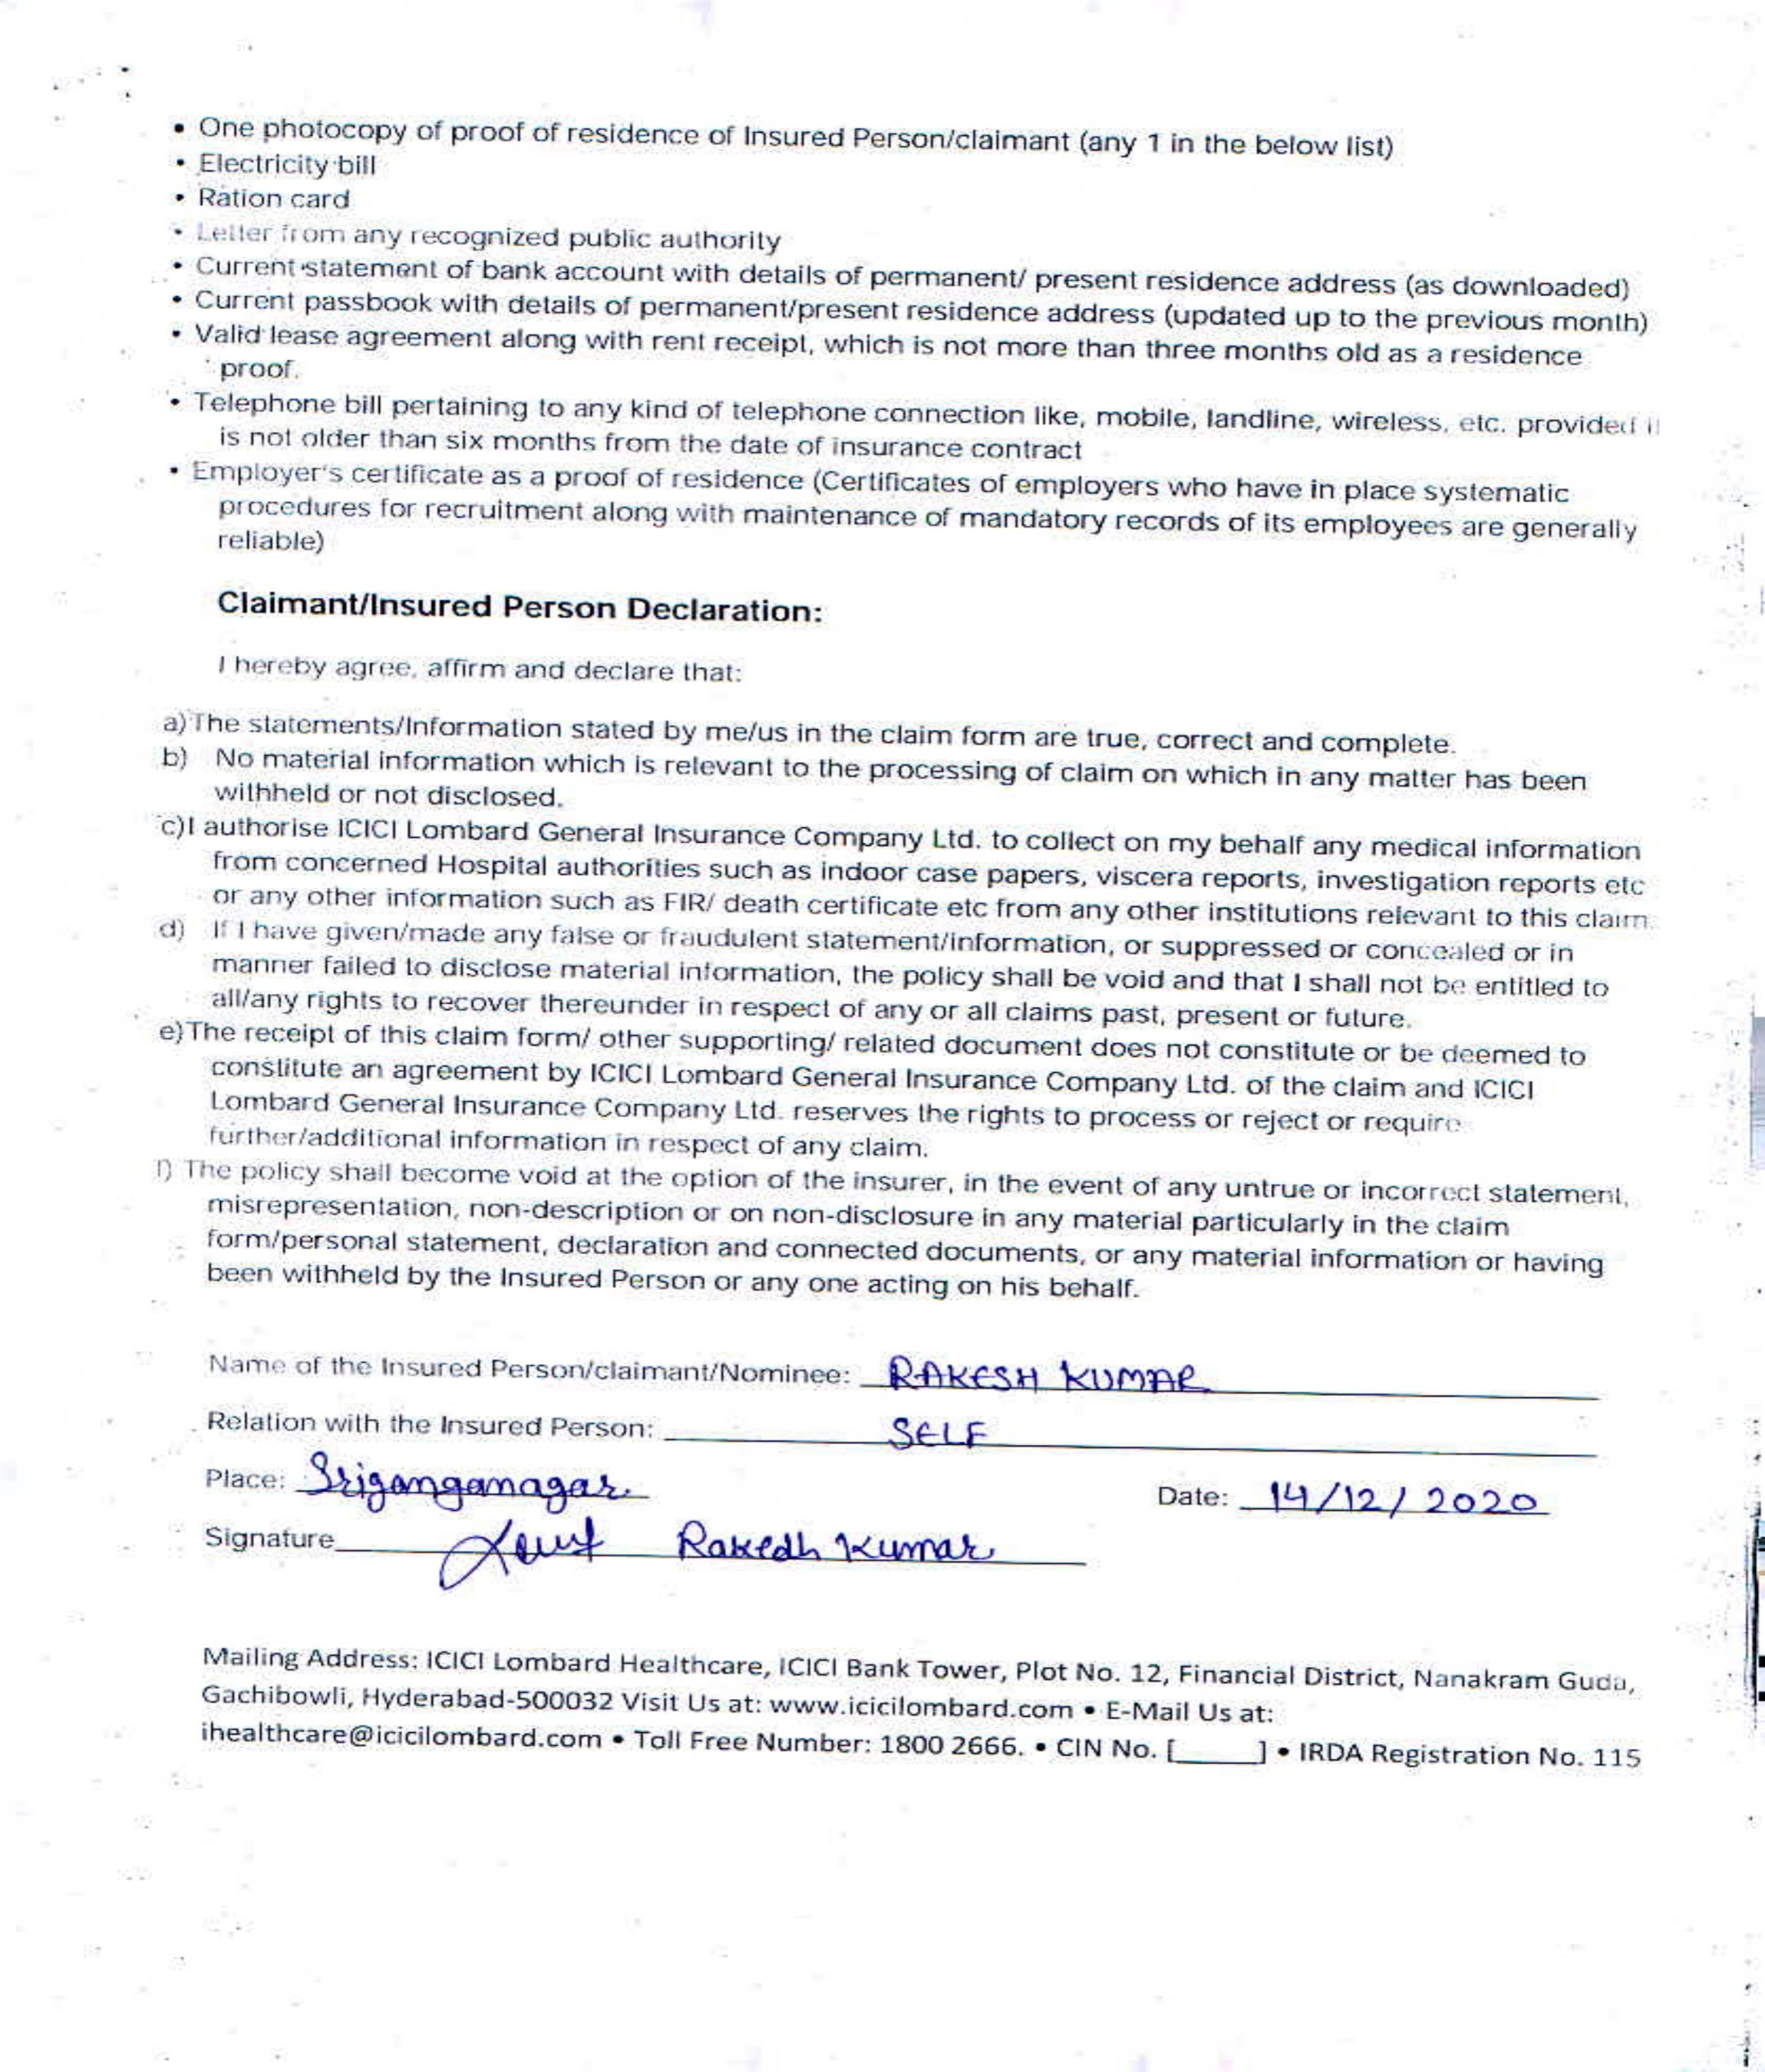 • One photocopy of proof of residence of Insured Person/claimant (any 1 in the below list)
• Electricity bill
• Ration card
• Letter from any recognized public authority
• Current statement of bank account with details of permanent/ present residence address (as downloaded)
• Current passbook with details of permanent/present residence address (updated up to the previous month)
• Valid lease agreement along with rent receipt, which is not more than three months old as a residence
proof.
• Telephone bill pertaining to any kind of telephone connection like, mobile, landline, wireless, etc. provided it
is not older than six months from the date of insurance contract
• Employer's certificate as a proof of residence (Certificates of employers who have in place systematic
procedures for recruitment along with maintenance of mandatory records of its employees are generally
reliable)
Claimant/Insured Person Declaration:
I hereby agree, affirm and declare that:
a) The statements/Information stated by me/us in the claim form are true, correct and complete.
b) No material information which is relevant to the processing of claim on which in any matter has been
withheld or not disclosed.
c) I authorise ICICI Lombard General Insurance Company Ltd. to collect on my behalf any medical information
from concerned Hospital authorities such as indoor case papers, viscera reports, investigation reports etc
or any other information such as FIR/ death certificate etc from any other institutions relevant to this claim.
d) If I have given/made any false or fraudulent statement/information, or suppressed or concealed or in
manner failed to disclose material information, the policy shall be void and that I shall not be entitled to
all/any rights to recover thereunder in respect of any or all claims past, present or future.
e) The receipt of this claim form/ other supporting/ related document does not constitute or be deemed to
constitute an agreement by ICICI Lombard General Insurance Company Ltd. of the claim and ICICI
Lombard General Insurance Company Ltd. reserves the rights to process or reject or require
further/additional information in respect of any claim.
f) The policy shall become void at the option of the insurer, in the event of any untrue or incorrect statement,
misrepresentation, non-description or on non-disclosure in any material particularly in the claim
form/personal statement, declaration and connected documents, or any material information or having
been withheld by the Insured Person or any one acting on his behalf.
Name of the Insured Person/claimant/Nominee: RAKESH KUMAR
Relation with the Insured Person: SELF
Place: Sriganganagar Date: 14/12/2020
Signature Rakesh Kumar
Mailing Address: ICICI Lombard Healthcare, ICICI Bank Tower, Plot No. 12, Financial District, Nanakram Guda,
Gachibowli, Hyderabad-500032 Visit Us at: www.icicilombard.com • E-Mail Us at:
ihealthcare@icicilombard.com • Toll Free Number: 1800 2666. • CIN No. [_____] • IRDA Registration No. 115